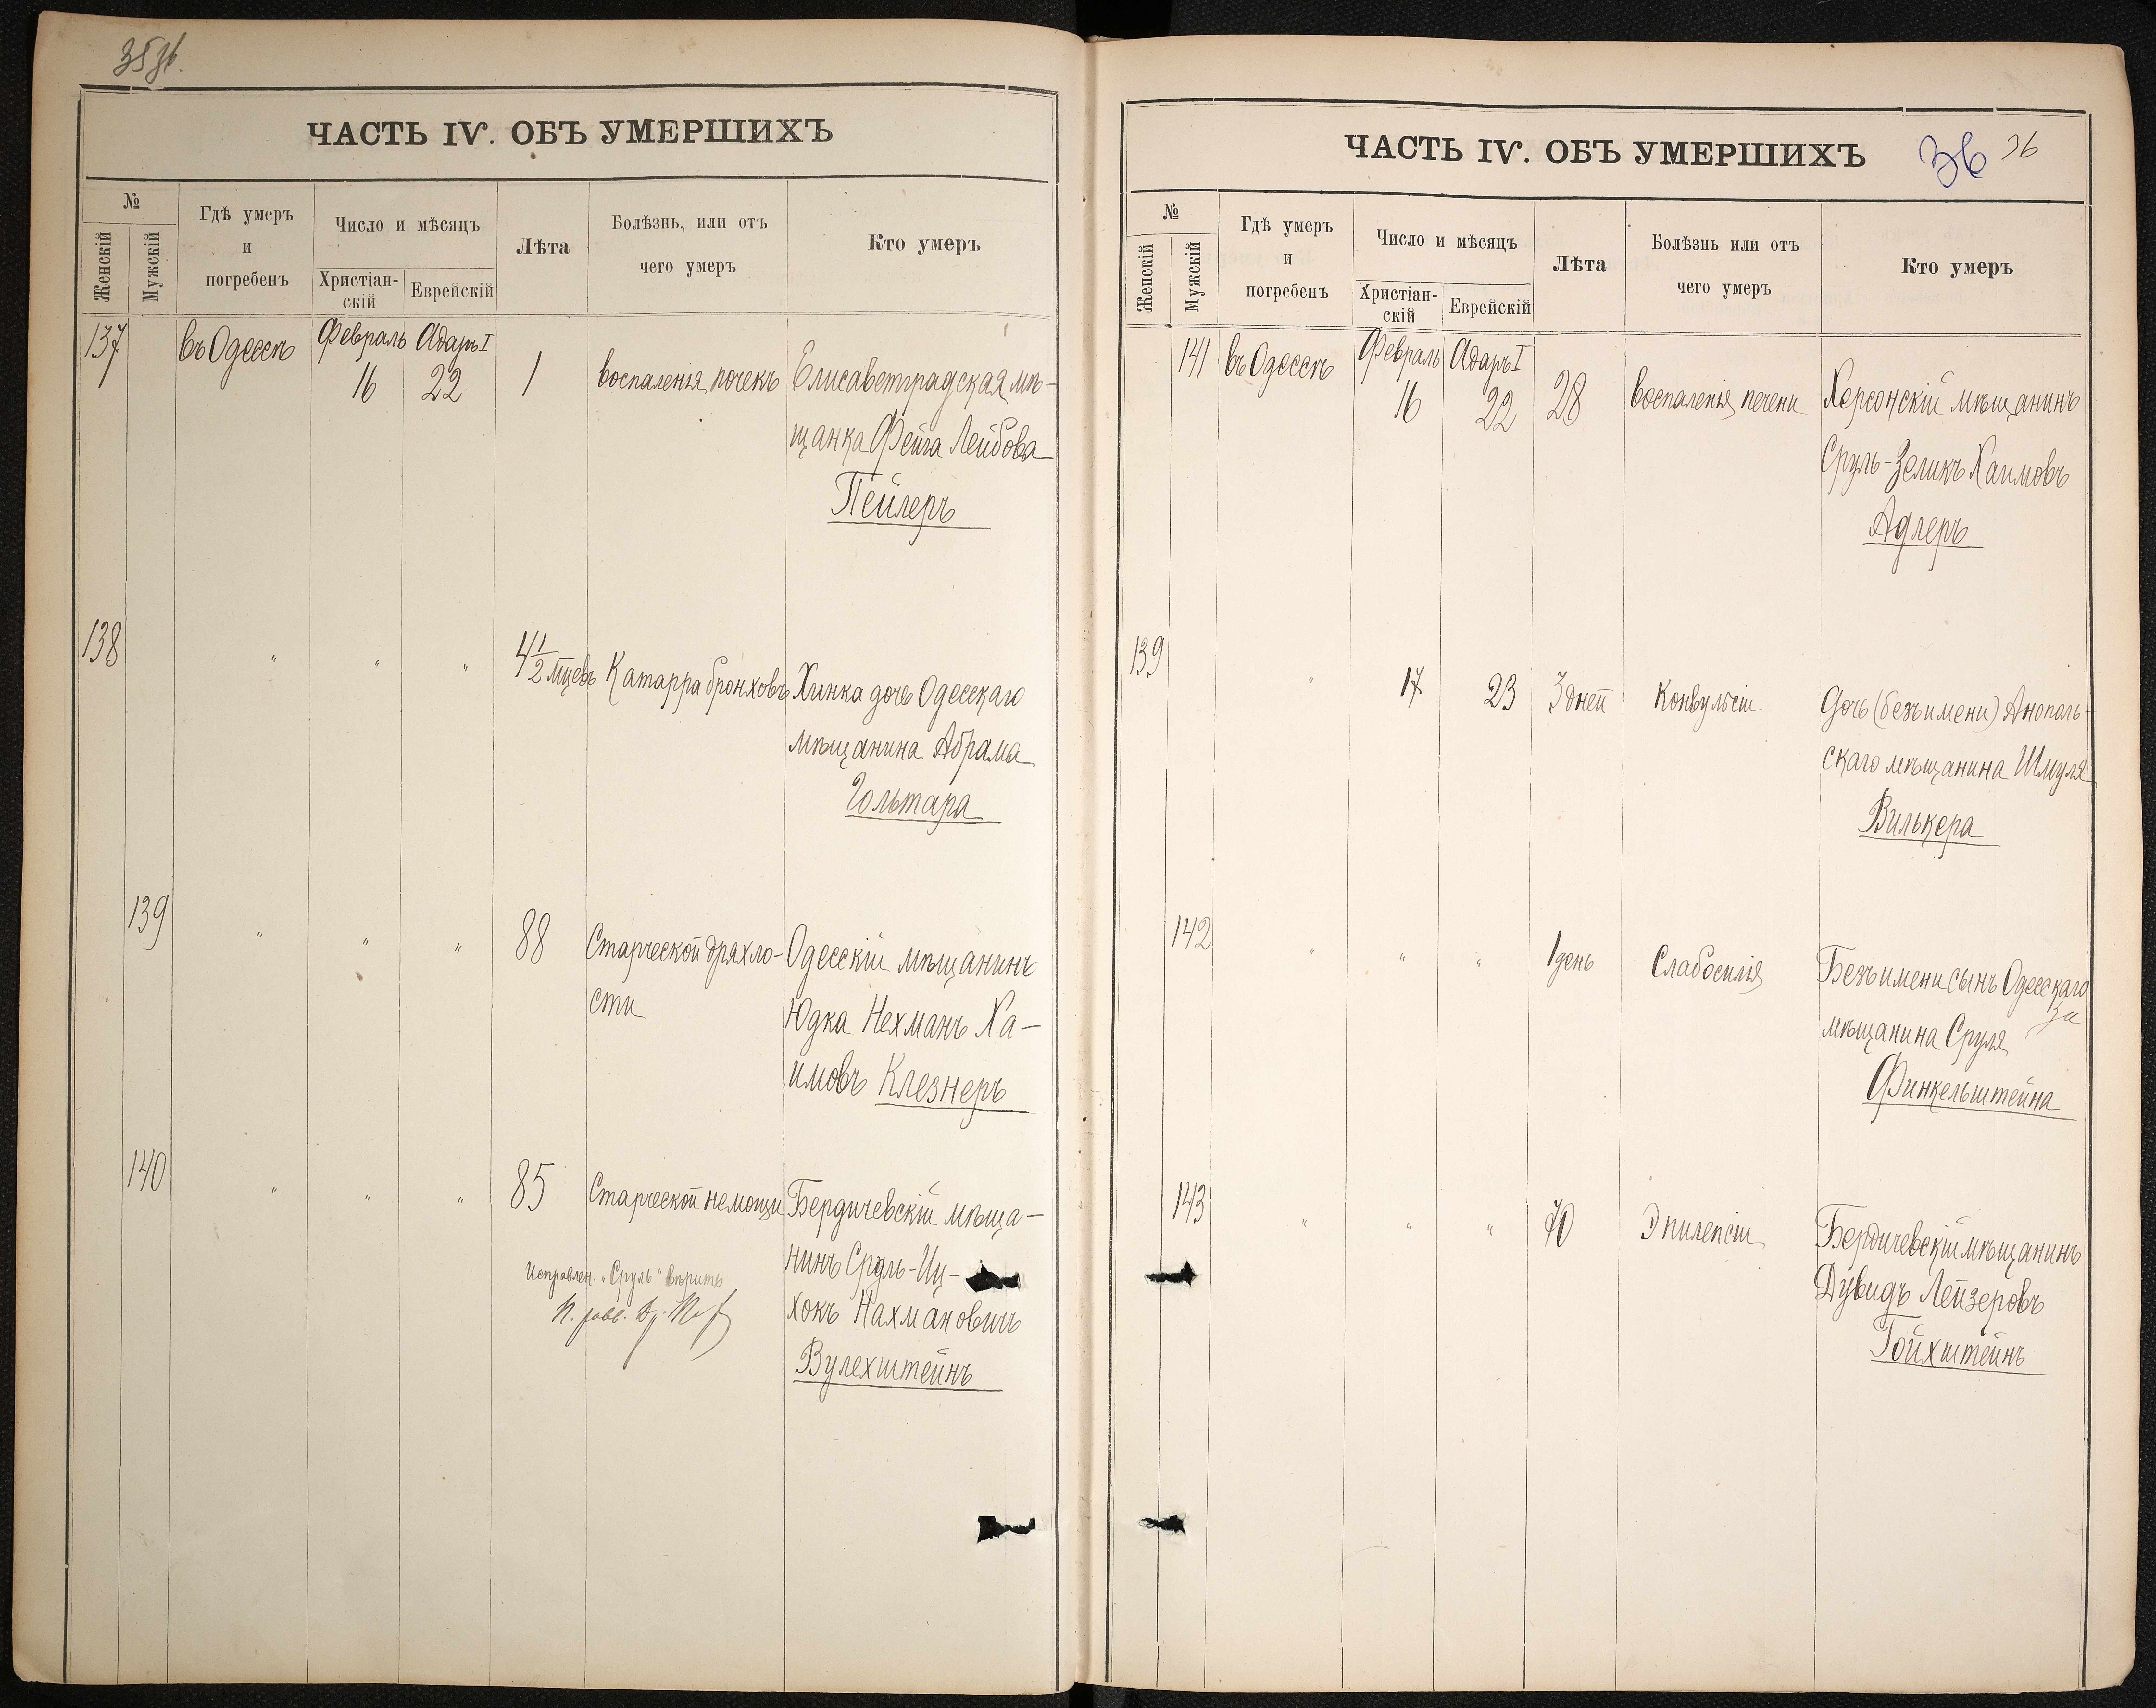 ЧАСТЬ IV. ОБЪ УМЕРШИХЪ
№
Женскій
Мужскій
Гдѣ умеръ
и
погребенъ
Число и мѣсяцъ
Христіан-
скій
Еврейскій
Лѣта
Болѣзнь, или отъ
чего умеръ
Кто умеръ
137 въ Одессѣ Февраль Адаръ I
16 22 1 воспаленія почекъ Елисаветградская мѣ-
щанка Фейга Лейбова
Пейлеръ
138 " " " 4 1/2 мцевъ Катарра бронховъ Хинка дочь Одесскаго
мѣщанина Абрама
Гольтара
139 " " " 88 Старческой дряхло- Одесскій мѣщанинъ
сти Юдка Нехманъ Ха-
имовъ Клезнеръ
140 " " " 85 Старческой немощи Бердичевскій мѣща-
нинъ Сруль-Иц-
Исправлен. „Сруль" вѣрить
хокъ Нахмановичъ
Вулехштейнъ
ЧАСТЬ IV. ОБЪ УМЕРШИХЪ 36 36
№
Женскій
Мужскій
Гдѣ умеръ
и
погребенъ
Число и мѣсяцъ
Христіан-
скій
Еврейскій
Лѣта
Болѣзнь или отъ
чего умеръ
Кто умеръ
141 въ Одессѣ Февраль Адаръ I
16 22 28 воспаленія печени Херсонскій мѣщанинъ
Сруль-Зеликъ Хаимовъ
Адлеръ
139 " 17 23 3 дней Конвульсіи Дочь (безъ имени) Анополь-
скаго мѣщанина Шмуля
Вилькера
142 " " " 1 день Слабосилія Безъ имени сынъ Одесскаго
мѣщанина Сруля
Финкельштейна
143 " " " 70 Эпилепсіи Бердичевскій мѣщанинъ
Дувидъ Лейзеровъ
Гойхштейнъ